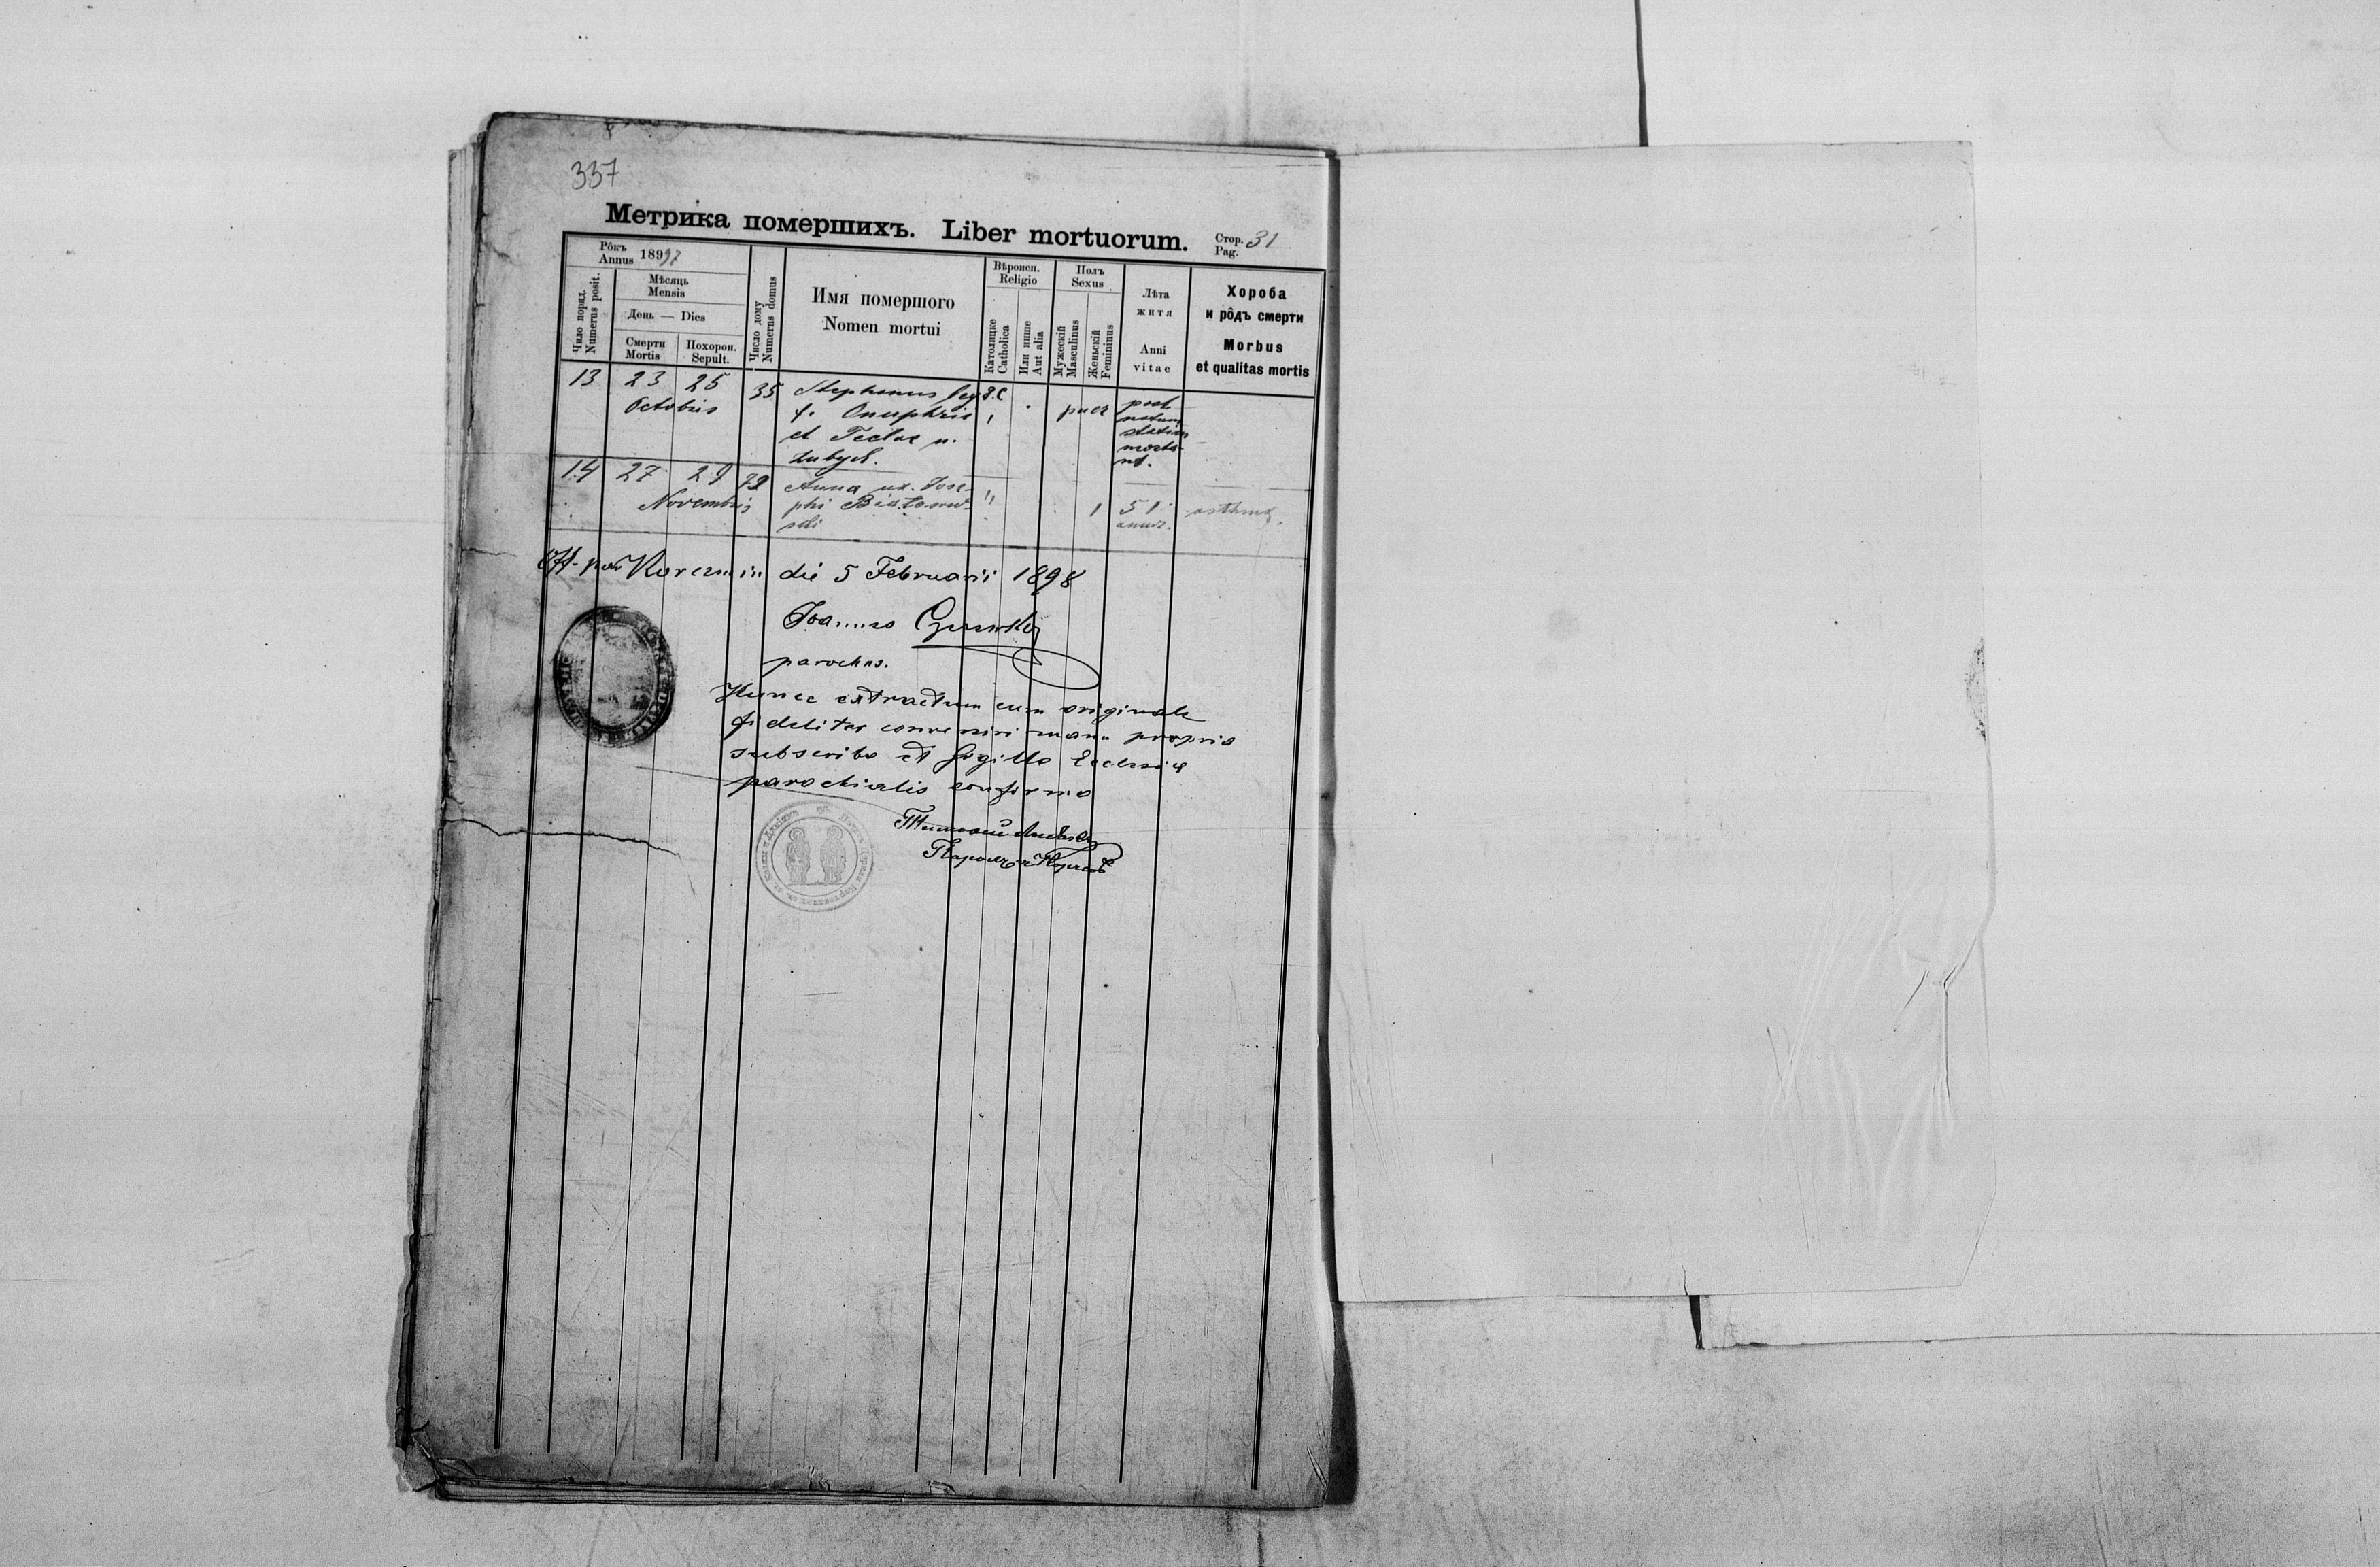 337
Метрика помершихъ. Liber mortuorum. Стор. Pag. 31
Рôкъ
Annus 1897
Число поряд.
Numerus posit.
Мѣсяць
Mensis
День — Dies
Смерти
Mortis
Похорон.
Sepult.
Число дому
Numerus domus
Имя помершого
Nomen mortui
Вѣроисп.
Religio
Католицке
Catholica
Или инше
Aut alia
Полъ
Sexus
Мужескій
Masculinus
Женьскій
Femininus
Лѣта
житя
Anni
vitae
Хороба
и рôдъ смерти
Morbus
et qualitas mortis
13 23 25 35 Stephanus leg g.c puer post
Octobris f. Onuphrii natum
et Teclae n. statim
mortu-
us.
14 27 29 72 Anna ux. Jose- "
Novembris phi 1 51 asthma
ski annor.
die 5 Februarii 1898
Joannes
parochus.
Hunc extractum cum originale
fideliter convenire manu propria
subscribo et sigillo Ecclesiae
parochialis confirmo